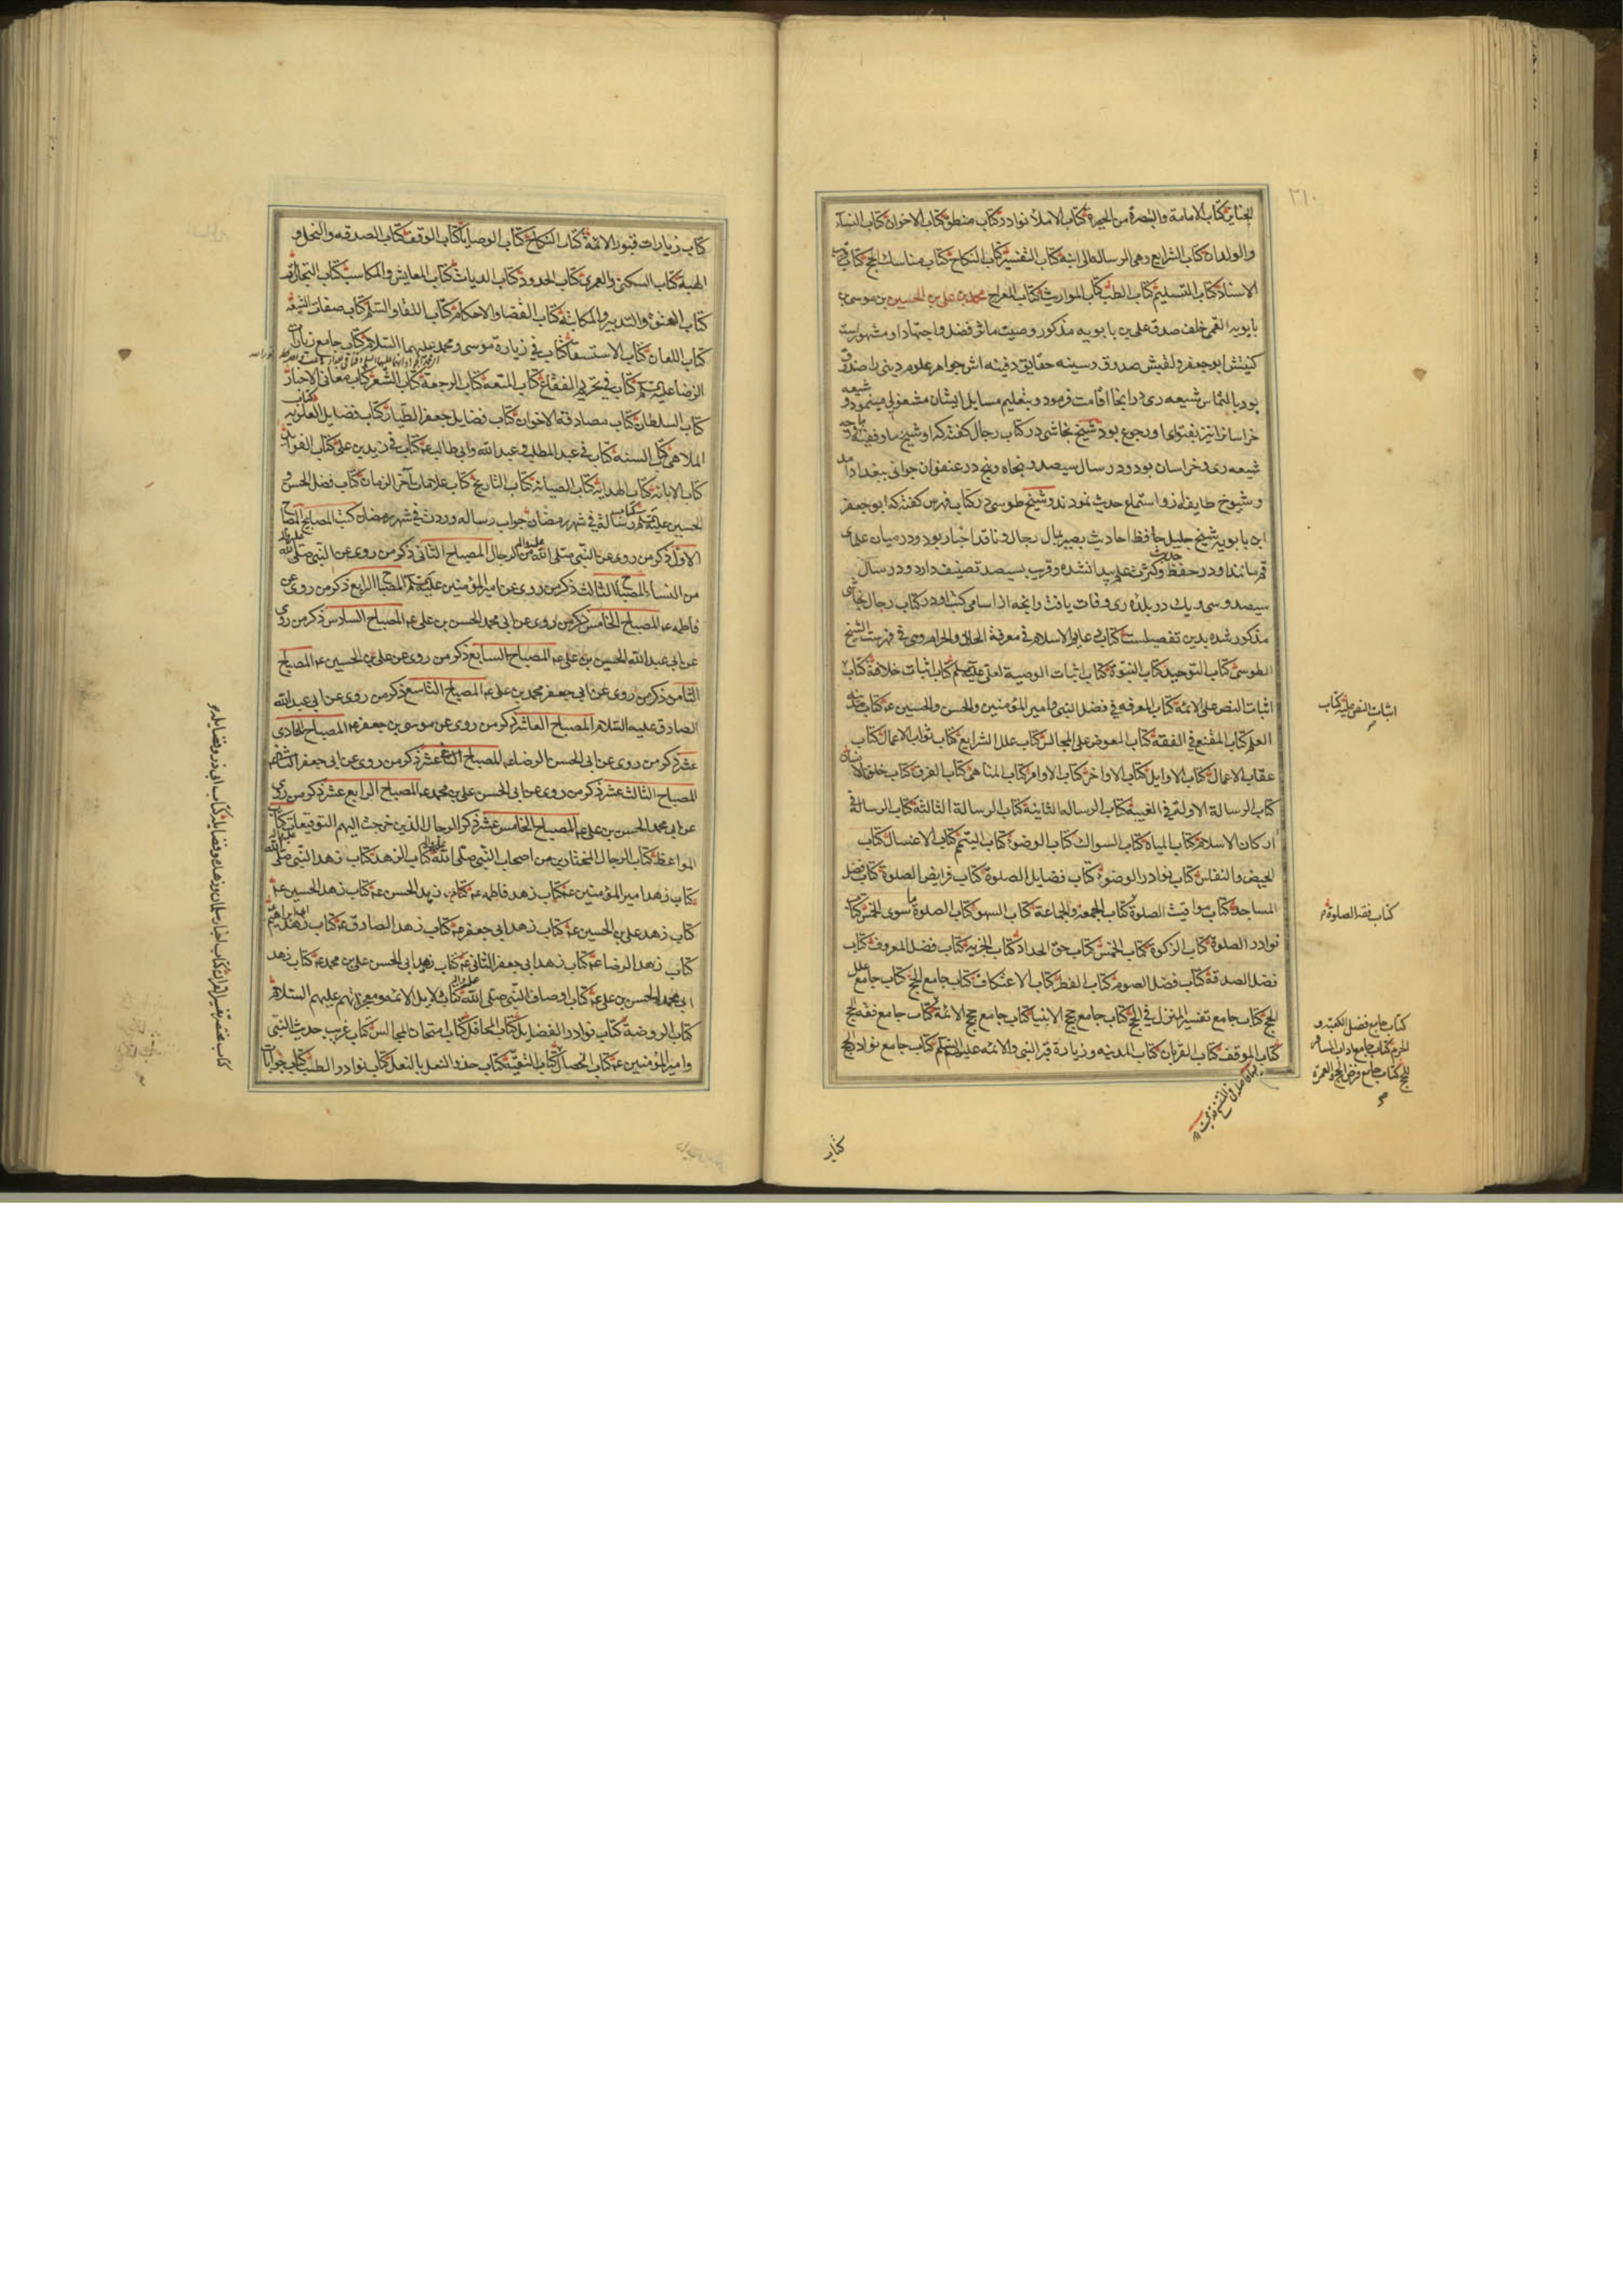 الجنایز کتاب الامامة والتبصرة من الحیرة کتاب الاملاء نوادر کتاب منطق کتاب الاخوان کتاب النساء
والولدان کتاب الشرایع وهی الرساله الی ابنه کتاب التفسیر کتاب النکاح کتاب مناسک الحج کتاب قرب
الاسناد کتاب التسلیم کتاب الطب کتاب المواریث کتاب المعراج محمد بن علی بن الحسین بن موسی بن
بابویه القمی خلف صدق علی بن بابویه مذکور وصیت ماثر فضل واجتهاد او مشهور است
کنیتش ابو جعفر ولقبش صدوق وسینه حقایق دفینه اش جواهر علوم دینی را صندوق
بود بالتماس شیعه ری در آنجا اقامت فرمود وبتعلیم مسایل ایشان مشغولی مینمود و شیعه
خراسانرا نیز بفتوای او رجوع بود شیخ نجاشی در کتاب رجال گفته که او شیخ ما وفقیه ما ووجه
شیعه ری وخراسان بود ودر سال سیصد وپنجاه وپنج در عنفوان جوانی ببغداد آمد
وشیوخ طایفه ازو استماع حدیث نمودند وشیخ طوسی در کتاب فهرس گفته که ابو جعفر
ابن بابویه شیخ جلیل حافظ احادیث بصیر بحال رجال وناقد اخبار بود ودر میان علمای
قم مانند او در حفظ وکثرت علم حدیث پیدا نشده وقریب بسیصد تصنیف دارد ودر سال
سیصد وسی ویک در بلده ری وفات یافت وآنچه از اسامی کتب او در کتاب رجال نجاشی
مذکور شده بدین تفصیلست کتاب دعایم الاسلام فی معرفة الحلال والحرام وهی فی فهرست الشیخ
الطوسی کتاب التوحید کتاب النبوة کتاب اثبات الوصیة لعلی علیه السلم کتاب اثبات خلافة کتاب
اثبات النص علی الائمه کتاب المعرفه فی فضل النبی وامیر المؤمنین والحسن والحسین ع کتاب مدینه
العلم کتاب المقنع فی الفقه کتاب العوض علی المجالس کتاب علل الشرایع کتاب ثواب الاعمال کتاب
عقاب الاعمال کتاب الاوایل کتاب الاواخر کتاب الاوامر کتاب المناهی کتاب الفرق کتاب خلق الانسان
کتاب الرسالة الاولة فی الغیبة کتاب الرساله الثانیة کتاب الرسالة الثالثة کتاب الرسالة فی
ارکان الاسلام کتاب المیاه کتاب السواک کتاب الوضوء کتاب التیمم کتاب الاغسال کتاب
الحیض والنفاس کتاب نوادر الوضوء کتاب فضایل الصلوة کتاب فرایض الصلوة کتاب فضل
المساجد کتاب مواقیت الصلوة کتاب الجمعه والجماعة کتاب السهو کتاب الصلوة ما سوی الخمس کتاب
نوادر الصلوة کتاب الزکوة کتاب الخمس کتاب حق الحداد کتاب الجزیه کتاب فضل المعروف کتاب
فضل الصدقة کتاب فضل الصوم کتاب الفطر کتاب الاعتکاف کتاب جامع الحج کتاب جامع علل
الحج کتاب جامع تفسیر المنزل فی الحج کتاب جامع حج الانبیا کتاب جامع حج الائمة کتاب جامع فقه الحج
کتاب الموقف کتاب القربان کتاب المدینه وزیارة قبر النبی والائمه علیهم السلم کتاب جامع نوادر الحج
اثبات النص علیه کتاب
کتاب فقه الصلوة
کتاب جامع فضل الکعبه و
الحرم کتاب جامع آداب المسافر
للحج کتاب جامع فرض الحج والعمرة
کتاب
کتاب زیارات قبور الائمة کتاب النکاح کتاب الوصایا کتاب الوقف کتاب الصدقه والنحل و
الهبة کتاب السکنی والعمری کتاب الحدود کتاب الدیات کتاب المعایش والمکاسب کتاب التجارات
کتاب العتق والتدبیر والمکاتبة کتاب القضا والاحکام کتاب اللقا والسلم کتاب صفات الشیعه
کتاب اللعان کتاب الاستسقا کتاب فی زیارة موسی ومحمد علیهما السلام کتاب جامع زیارات
الرضا علیه السلم کتاب فی تحریم الفقاع کتاب المتعه کتاب الرجعة کتاب الشعر کتاب معانی الاخبار
کتاب السلطان کتاب مصادقه الاخوان کتاب فضایل جعفر الطیار کتاب فضایل العلویه کتاب
الملاهی کتاب السنه کتاب فی عبد المطلب وعبد الله وابی طالب ع کتاب فی زید بن علی کتاب الفواید
کتاب الابانة کتاب الهدایة کتاب الصیانة کتاب التاریخ کتاب علامات آخر الزمان کتاب فضل الحسن و
الحسین علیهم السلم کتاب رسالة فی شهر رمضان جواب رساله وردت فی شهر رمضان کتب المصابیح المصباح
الاول ذکر من روی عن النبی صلی الله علیه وآله من الرجال المصباح الثانی ذکر من روی عن النبی صلی الله علیه وآله
من النساء المصباح الثالث ذکر من روی عن امیر المؤمنین علیه السلم المصباح الرابع ذکر من روی عن
فاطمه ع المصباح الخامس ذکر من روی عن ابی محمد الحسن بن علی ع المصباح السادس ذکر من روی
عن ابی عبد الله الحسین بن علی ع المصباح السابع ذکر من روی عن علی بن الحسین ع المصباح
الثامن ذکر من روی عن ابی جعفر محمد بن علی ع المصباح التاسع ذکر من روی عن ابی عبد الله
الصادق علیه السلام المصباح العاشر ذکر من روی عن موسی بن جعفر ع المصباح الحادی
عشر ذکر من روی عن ابی الحسن الرضا ع المصباح الثانی عشر ذکر من روی عن ابی جعفر الثانی ع
المصباح الثالث عشر ذکر من روی عن ابی الحسن علی بن محمد ع المصباح الرابع عشر ذکر من روی
عن ابی محمد الحسن بن علی ع المصباح الخامس عشر ذکر الرجال الذین خرجت الیهم التوقیعات کتاب
المواعظ کتاب الرجال المختارین من اصحاب النبی صلی الله علیه وآله کتاب الزهد کتاب زهد النبی صلی الله علیه وآله
کتاب زهد امیر المؤمنین ع کتاب زهد فاطمه ع کتاب زهد الحسن ع کتاب زهد الحسین ع
کتاب زهد علی بن الحسین ع کتاب زهد ابی جعفر ع کتاب زهد الصادق ع کتاب زهد ابی ابراهیم
کتاب زهد الرضا ع کتاب زهد ابی جعفر الثانی ع کتاب زهد ابی الحسن علی بن محمد ع کتاب زهد
ابی محمد الحسن بن علی ع کتاب اوصاف النبی صلی الله علیه وآله کتاب دلایل الائمه ومعجزاتهم علیهم السلام
کتاب الروضة کتاب نوادر الفضایل کتاب المحافل کتاب امتحان المجالس کتاب غریب حدیث النبی
وامیر المؤمنین ع کتاب الخصال کتاب التقیة کتاب حذو النعل بالنعل کتاب نوادر الطب کتاب جوابات